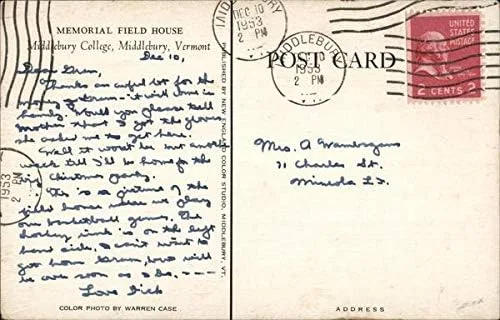 MEMORIAL FIELD HOUSE
Middlebury College, Middlebury, Vermont
Dec 10,
Dear Gram,
Thanks an awful lot for the
money Gram - it will come in
handy. Would you please tell
mother that I got the gloves
she asked me to get here.
Well it won't be but another
week till I'll be home for the
Christmas party.
This is a picture of the
field house where we play
our basketball games. The
hockey rink is on the left
hand side. I can't wait to
get home Gram, but will
be over soon as I do. ----
Love Dick
COLOR PHOTO BY WARREN CASE
PUBLISHED BY NEW ENGLAND COLOR STUDIO, MIDDLEBURY, VT.
MIDDLEBURY
DEC 10
1953
2 PM
MIDDLEBURY
1953
2 PM
VT.
1953
2 PM
POST CARD
UNITED
STATES
POSTAGE
2 CENTS 2
Mrs. A
71 Charles St.
Mineola L.I.
ADDRESS